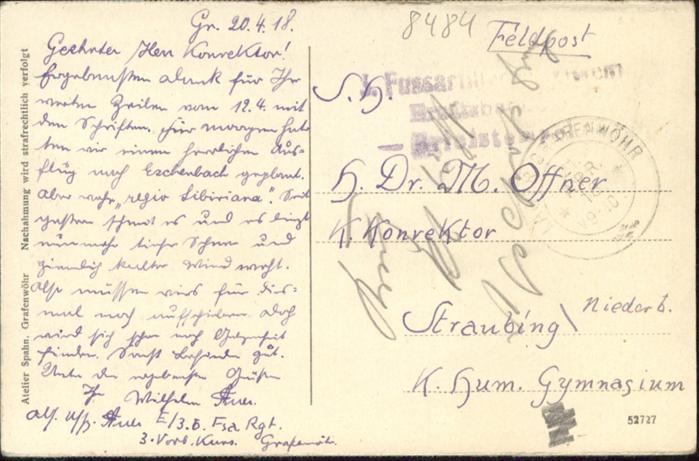 Gr. 20.4.18.
Geehrter Herr Konrektor!
Ergebensten Dank für Ihre
werten Zeilen vom 12.4. mit
den Schriften. Für morgen hat-
ten wir einen herrlichen Aus-
flug nach Eschenbach geplant.
Aber wahr „regio Sibiriana". Seit
gestern schneit es und es liegt
nunmehr tiefer Schnee und
ziemlich kalter Wind weht.
Also müssen wirs für dies-
mal noch aufschieben. Doch
wird sich schon noch Gelegenheit
finden. Sonst befinde gut.
Unter den ergebensten Grüßen
Ihr Wilhelm
3. Vorb. Kurs. Grafenwöhr
Atelier Spahn, Grafenwöhr Nachahmung wird strafrechtlich verfolgt
8484
Feldpost
S. H.
H. Dr. M. Offner
K. Konrektor
Straubing / Niederb.
K. Hum. Gymnasium
52727